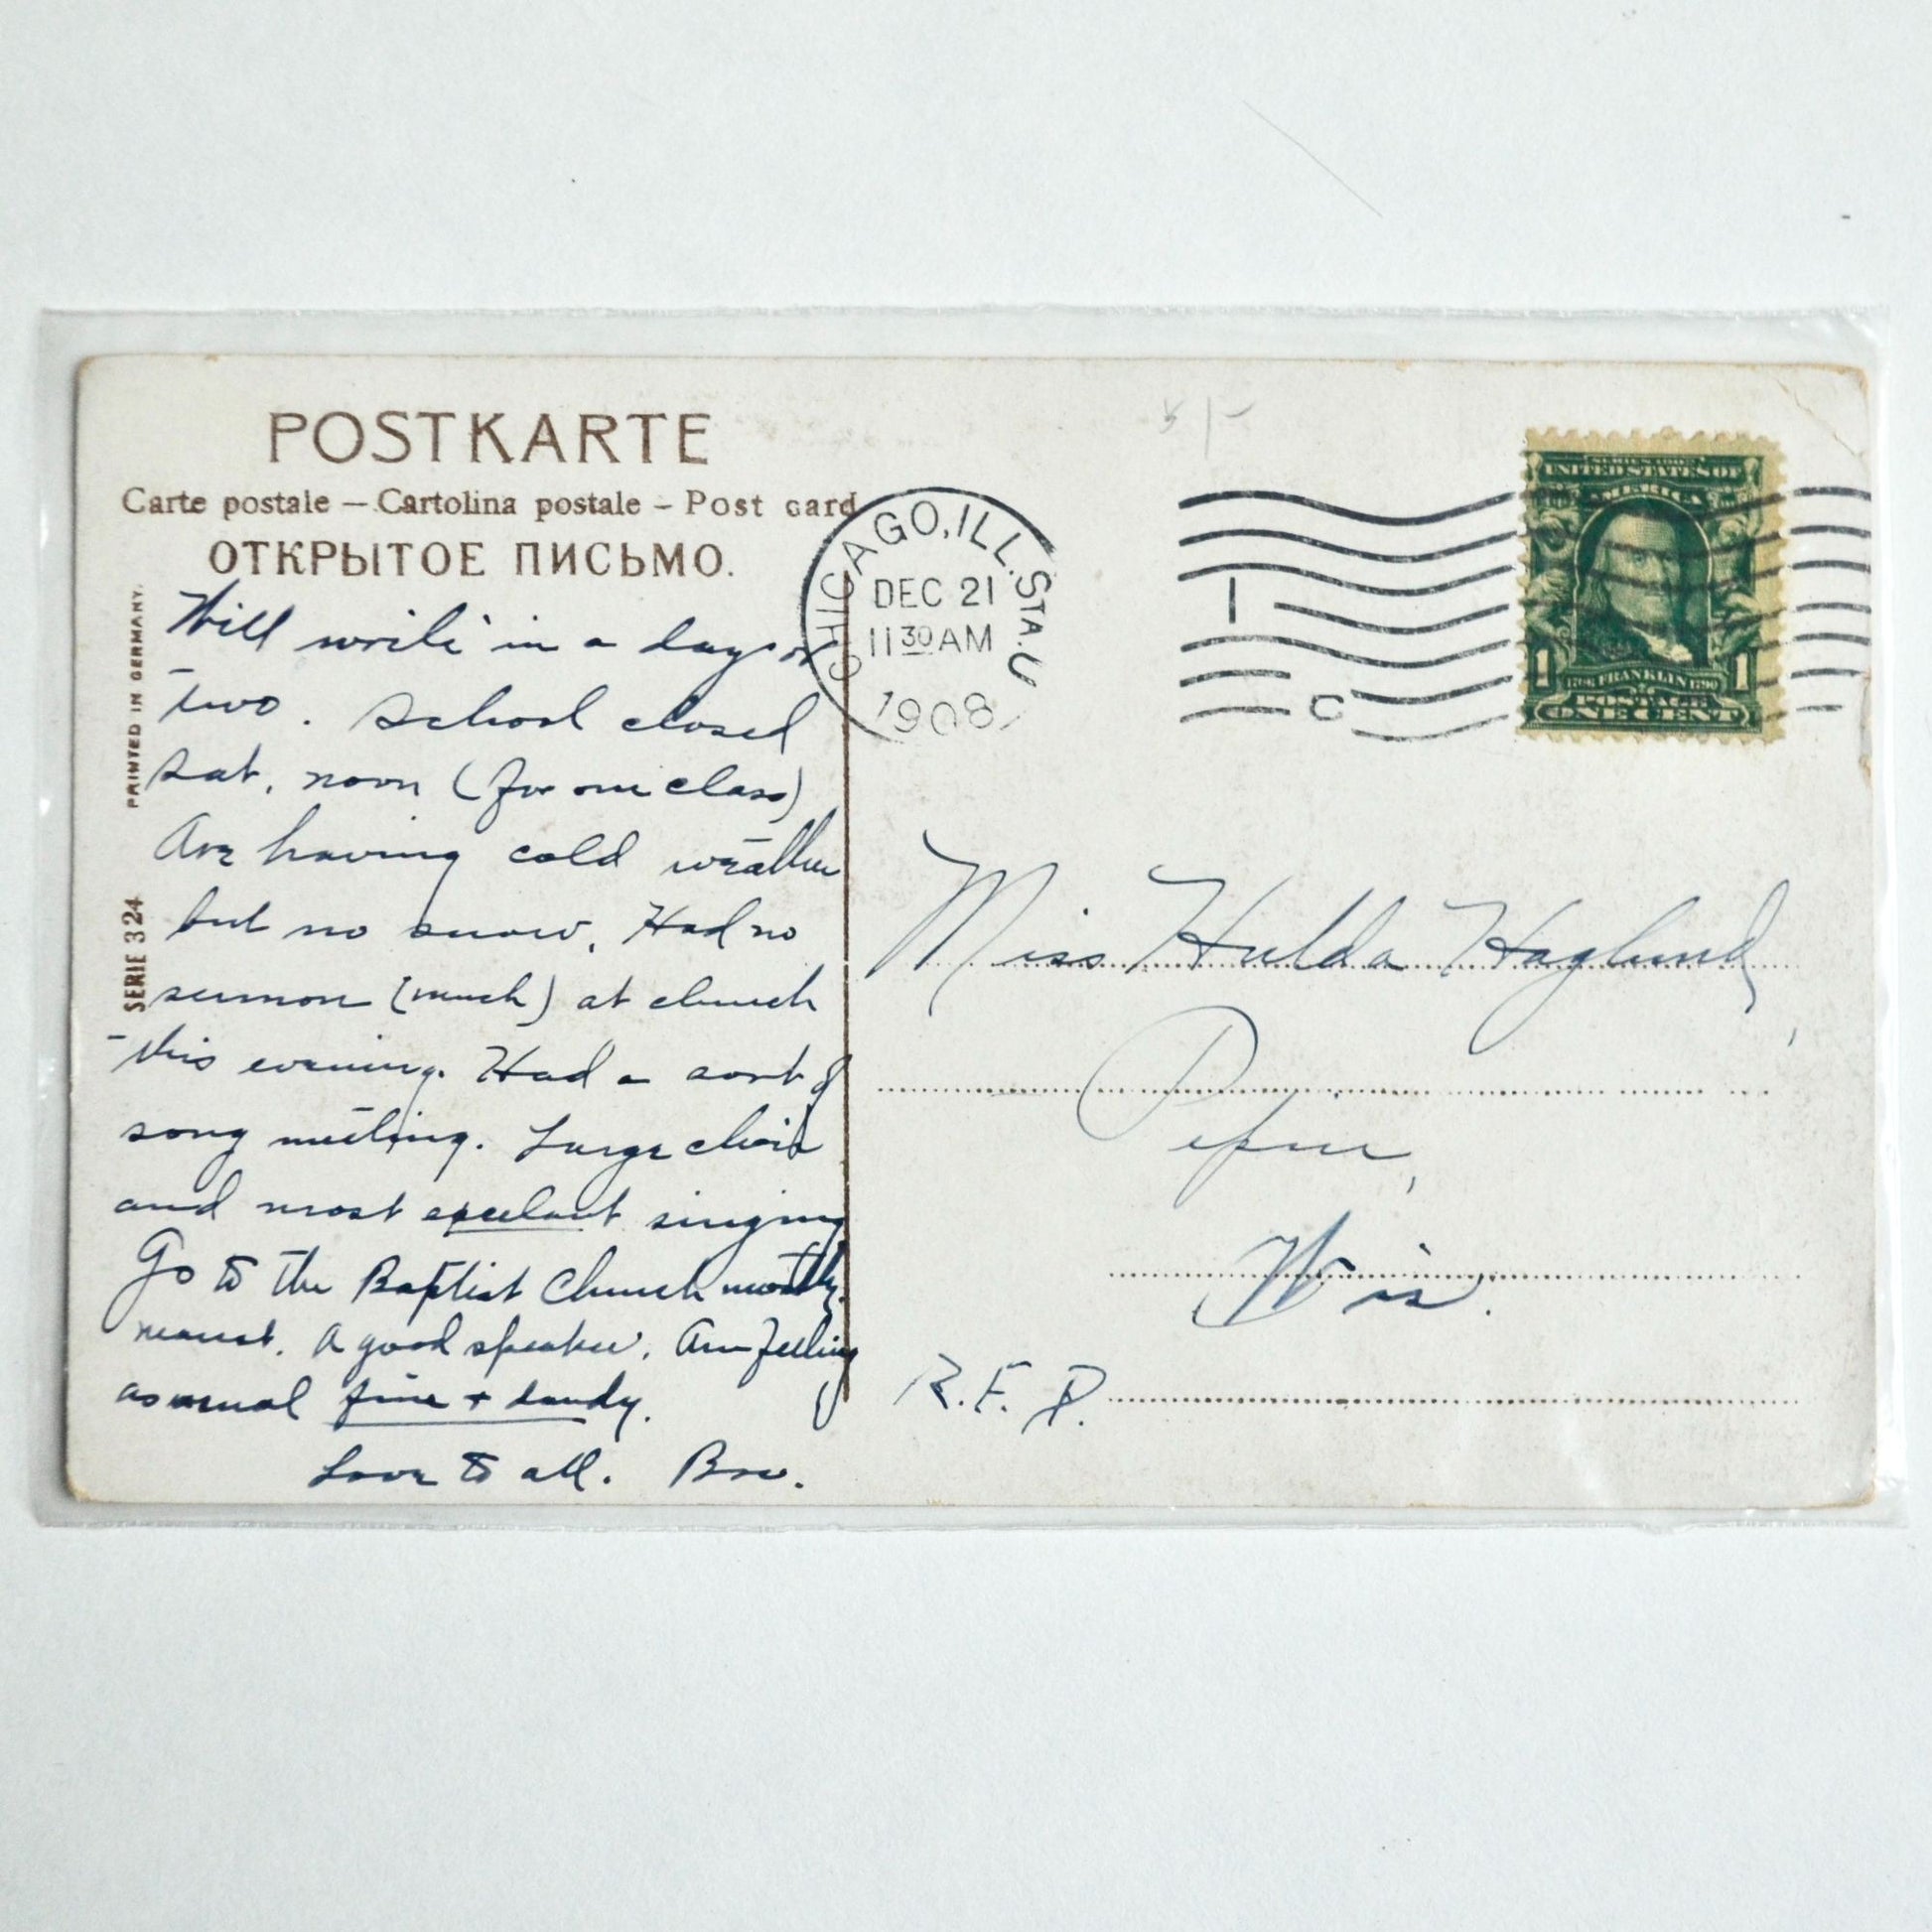 POSTKARTE
Carte postale – Cartolina postale – Post card
ОТКРЫТОЕ ПИСЬМО.
PRINTED IN GERMANY.
SERIE 324
Will write in a day or
two. School closed
Sat. noon (for our class)
Are having cold weather
but no snow. Had no
sermon (much) at church
this evening. Had a sort of
song meeting. Large choir
and most excelant singing
Go to the Baptist Church mostly.
nearest. A good speaker. Am feeling
as usual fine + dandy.
Love to all. Bro.
CHICAGO, ILL. STA. U
DEC 21
11 30 AM
1908
1
C
UNITED STATES OF
AMERICA
FRANKLIN
1 1
POSTAGE
ONE CENT
Miss Hulda Haglund,
Pepin,
Wis.
R.F.D.